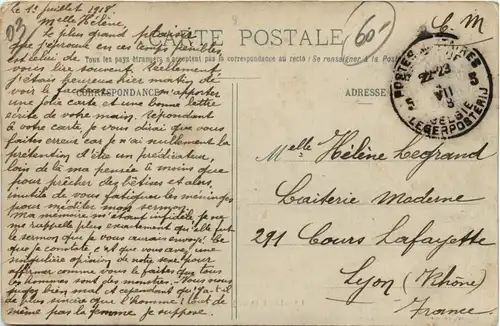 le 1er juillet 1918.
Melle Hélène,
Le plus grand plaisir
que j'éprouve en ces temps pénibles
est celui de
vous lire souvent. Réellement,
j'étais heureuse hier matin de
voir le facteur m'apporter
une jolie carte et une bonne lettre
écrite de votre main. Répondant
à votre carte, je vous dirai que vous
faites erreur car je n'ai nullement la
prétention d'être un prédicateur,
loin de là ma pensée à moins que
pour prêcher des bêtises et alors
inutile de vous fatiguer les méninges
pour méditer mon sermon.
Ma mémoire m'étant infidèle je ne
me rappelle plus exactement quel fut
le sermon que je vous aurais envoyé. Ce
que je constate c'est que vous avez une
singulière opinion de notre sexe pour
affirmer comme vous le faites que tous
les hommes sont des monstres. Vous vous
jugez bien mal et cependant qu'y a-t-il
de plus sincère que l'homme? tout de
même pas la femme je suppose.
03
CARTE POSTALE
60
S. M.
Tous les pays étrangers n'acceptent pas la correspondance au recto (Se renseigner à la Poste)
CORRESPONDANCE
ADRESSE
POSTES MILITAIRES
22-23
VII
18
5
BELGIE
LEGERPOSTERIJ
Melle Hélène Legrand
Laiterie Moderne
291 Cours Lafayette
Lyon (Rhône)
France